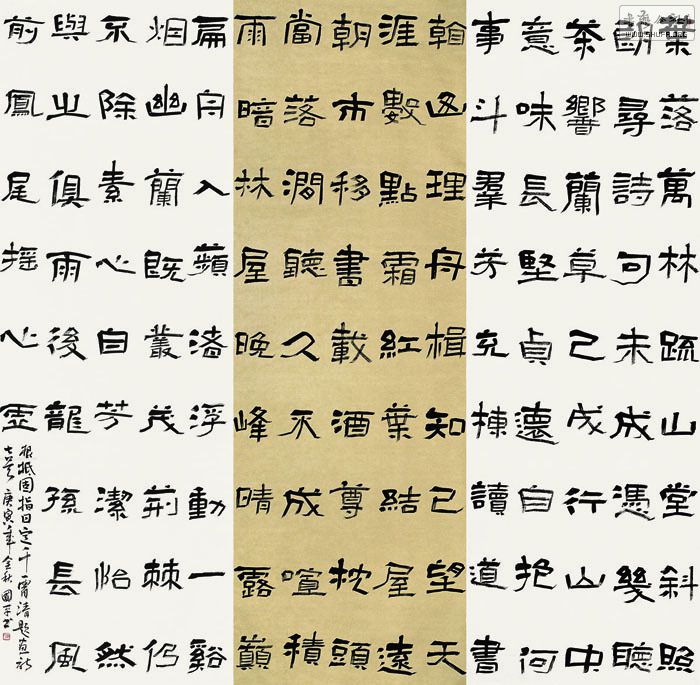 葉落萬林疏山堂斜照
朗尋詩句未成憑幾聽
茶響蘭草已成行山中
意味長堅貞還自抱何
事斗羣芳充棟讀道書
翰函理舟楫知已望天
涯數點霜紅葉結屋遠
朝市移書載酒尊枕頭
當落澗聽久不成喧積
雨暗林屋晚峰晴露巔
扁舟入蘋渚浮動一谿
烟幽蘭既叢茂荊棘仍
不除素心自芳潔怡然
與之俱雨後龍孫長風
前鳳尾搖心虛
根柢固指日定干霄清題畫詩
七首庚寅年金秋國平書